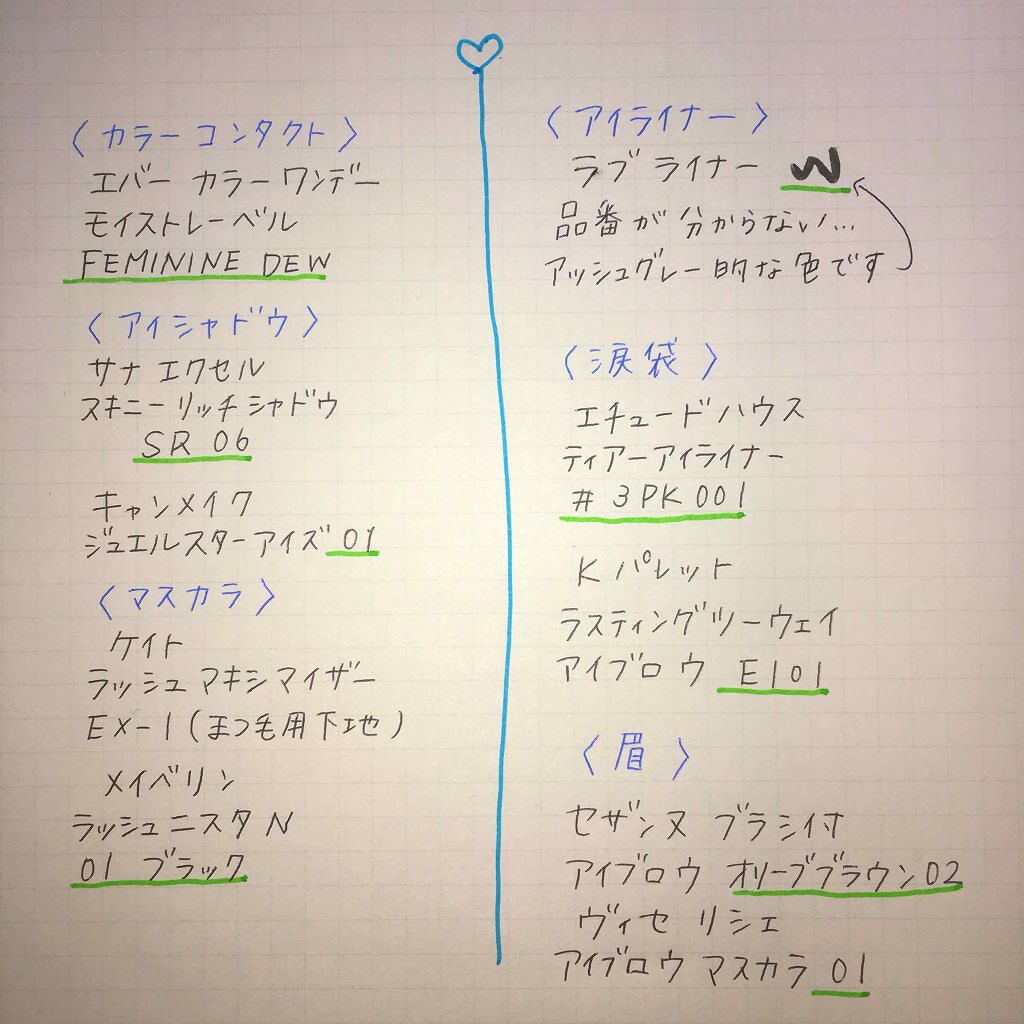 〈カラーコンタクト〉
エバーカラーワンデー
モイストレーベル
FEMININE DEW
〈アイシャドウ〉
サナ エクセル
スキニーリッチシャドウ
SR 06
キャンメイク
ジュエルスターアイズ 01
〈マスカラ〉
ケイト
ラッシュマキシマイザー
EX-1(まつ毛用下地)
メイベリン
ラッシュニスタN
01 ブラック
〈アイライナー〉
ラブライナー W
品番が分からない...
アッシュグレー的な色です
〈涙袋〉
エチュードハウス
ティアーアイライナー
#3PK001
Kパレット
ラスティングツーウェイ
アイブロウ E101
〈眉〉
セザンヌ ブラシ付
アイブロウ オリーブブラウン02
ヴィセ リシェ
アイブロウマスカラ 01